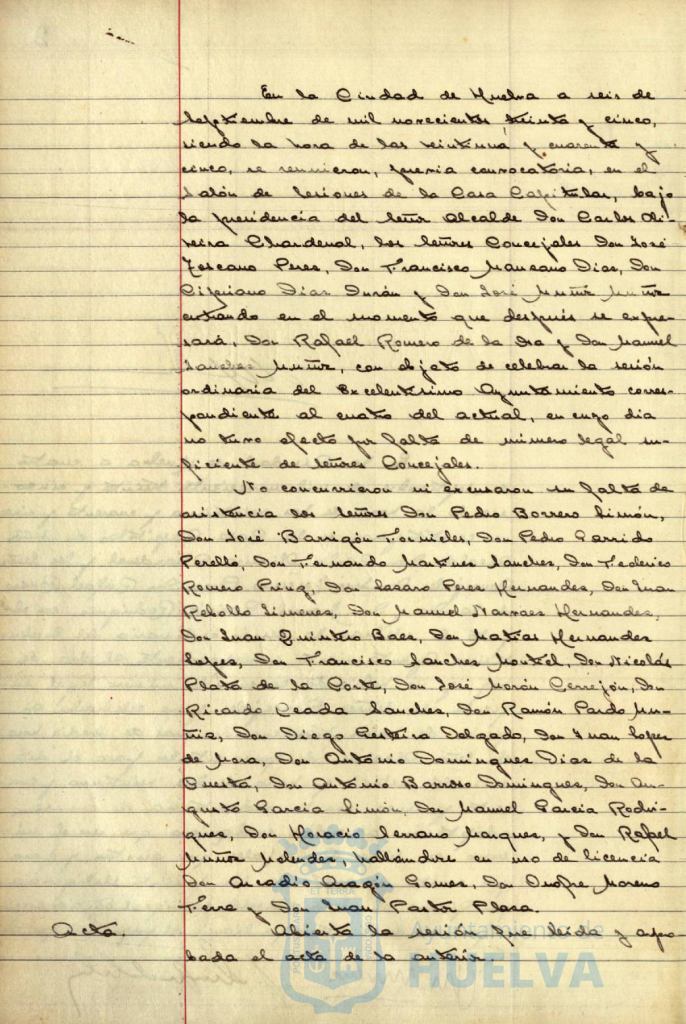 En la Ciudad de Huelva a seis de
Septiembre de mil novecientos treinta y cinco,
siendo la hora de las veintiuna y cuarenta y
cinco, se reunieron, previa convocatoria, en el
Salón de Sesiones de la Casa Capitular, bajo
la presidencia del Señor Alcalde Don Carlos Oli-
veira Chardenal, los Señores Concejales Don José
Toscano Peres, Don Francisco Manzano Dias, Don
Cipriano Dias Durán y Don José Muñiz Muñiz
entrando en el momento que después se expre-
sará, Don Rafael Romero de la Isa y Don Manuel
Sanches Muñiz, con objeto de celebrar la sesión
ordinaria del Excelentísimo Ayuntamiento corres-
pondiente al cuatro del actual, en cuyo dia
no tuvo efecto por falta de número legal su-
ficiente de Señores Concejales.
No concurrieron ni excusaron su falta de
asistencia los Señores Don Pedro Borrero Limón,
Don José Barrigón Fornieles, Don Pedro Garrido
Perelló, Don Fernando Martines Sanches, Don Federico
Romero Don Lasaro Peres Hernandes, Don Juan
Rebollo Jimenes, Don Manuel Narvaes Hernandes,
Don Juan Quintero Baes, Don Matias Hernandes
Lopes, Don Francisco Sanches Montiel, Don Nicolás
Plata de la Corte, Don José Morón Cerrejón, Don
Ricardo Ceada Sanches, Don Ramón Pardo Mu-
ñiz, Don Diego Delgado, Don Juan Lopes
de Mora, Don Antonio Domingues Dias de la
Cuesta, Don Antonio Barroso Domingues, Don Au-
gusto Garcia Limón, Don Manuel Garcia Rodri-
gues, Don Horacio Serrano Marques, y Don Rafael
Muñiz hallándose en uso de licencia
Don Arcadio Aragón Gomes, Don Onofre Moreno
y Don Juan Pastor Plasa.
Acta. Abierta la sesión fue leida y apro-
bada el acta de la anterior.
Ayuntamiento de
HUELVA